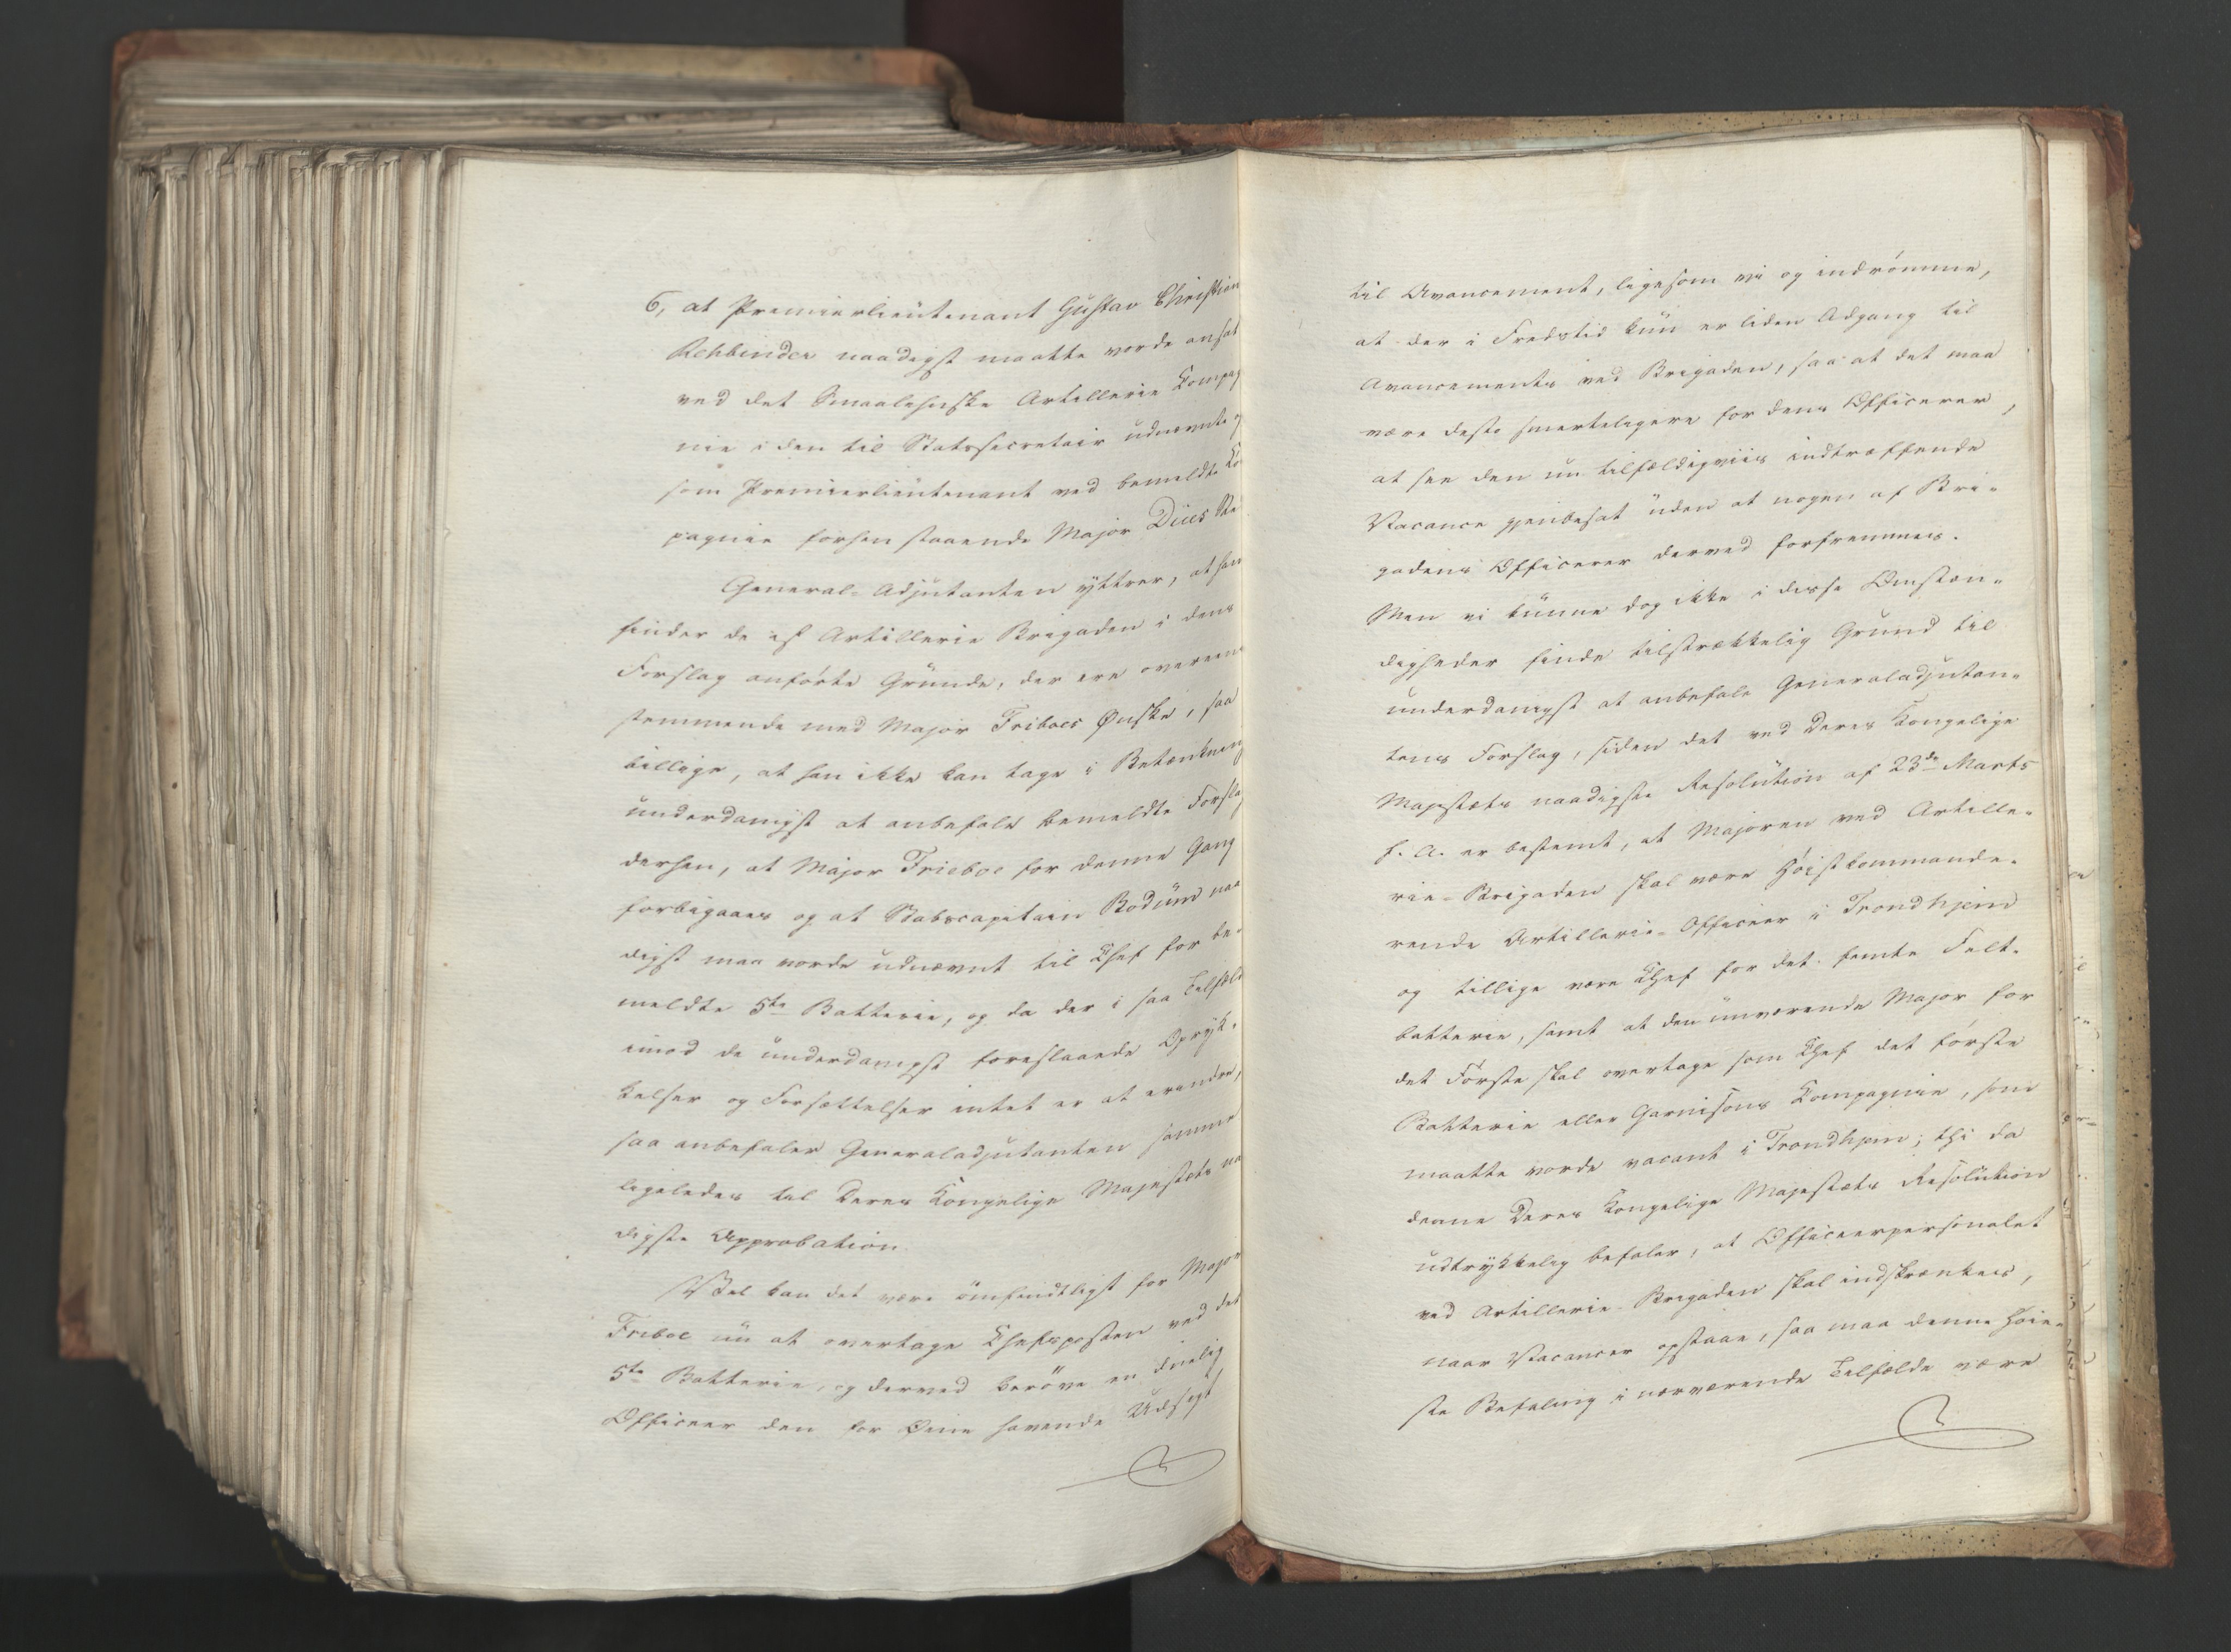 6, at Premierlieutenant Gustav Christian
Rehbinder naadigst maatte vorde ansat
ved det Smaalehnske Artillerie Kompag
nie i den til Statssecretair udnævnte og
som Premierlieutenant ved bemeldte Ko
pagnie forhen staaende Major Dues Ste
General-Adjutanten yttrer, at han
finder de af Artillerie Brigaden i dens
Forslag anførte Grunde, der ere overeens
stemmende med Major Friboes Ønske, saa
billige, at han ikke kan tage i Betænkning
underdanigst at anbefale bemeldte Forslag
derhen, at Major Frieboe for denne Gang
forbigaaes og at Stabscapitain Bodům naa
digst maa vorde udnævnt til Chef for be-
meldte 5te Batterie, og da der i saa Tilfælde
imod de underdanigst foreslaaede Opryk-
kelser og Forsættelser intet er at erindre,
saa anbefaler Generaladjutanten samme
ligeledes til Deres Kongelige Majestæts na
digste Approbation
Vel kan det være ömfindtligt for Major
Friboe nu at overtage Chefsposten ved det
5te Batterie, og derved beröve en duelig
Officeer den for Øine havende Udsigt
til Avancement, ligesom vi og indrömme,
at der i Fredstid kun er liden Adgang til
Avancements ved Brigaden, saa at det maa
være desto smerteligere for dens Officerer,
at see den nu tilfældigviis indtræffende
Vacance gjenbesat uden at nogen af Bri-
gadens Officerer derved forfremmes.
Men vi kunne dog ikke i disse Omstæn-
digheder finde tilstrækkelig Grund til
underdanigst at anbefale Generaladjutan-
tens Forslag, siden det ved Deres Kongelige
Majestæts naadigste Resolution af 23de Marts
f. A. er bestemt, at Majoren ved Artille-
rie-Brigaden skal være Høistkommande-
rende Artillerie-Officeer i Trondhjem
og tillige være Chef for det femte Felt-
batterie, samt at den nuværende Major for
det Første skal overtage som Chef det første
Batterie eller Garnisons Kompagnie, som
maatte vorde vacant i Trondhjem; thi da
denne Deres Kongelige Majestæts Resolution
udtrykkelig befaler, at Officeerpersonalet
ved Artillerie-Brigaden skal indskrænkes,
naar Vacancer opstaae, saa maa denne Høie-
ste Befaling i nærværende Tilfælde være